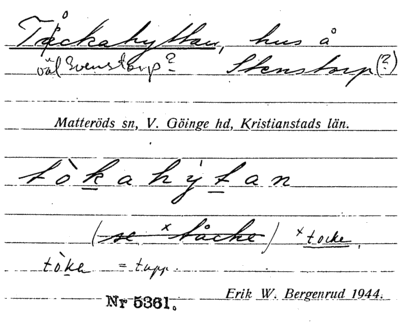 Tåckahyttan, hus å
väl Svenstorp? Stenstorp(?)
Matteröds sn, V. Göinge hd, Kristianstads län.
tòkahy̍tan
(se x tåcke) x tocke.
tòka = tupp.
Nr 5361. Erik W. Bergenrud 1944.